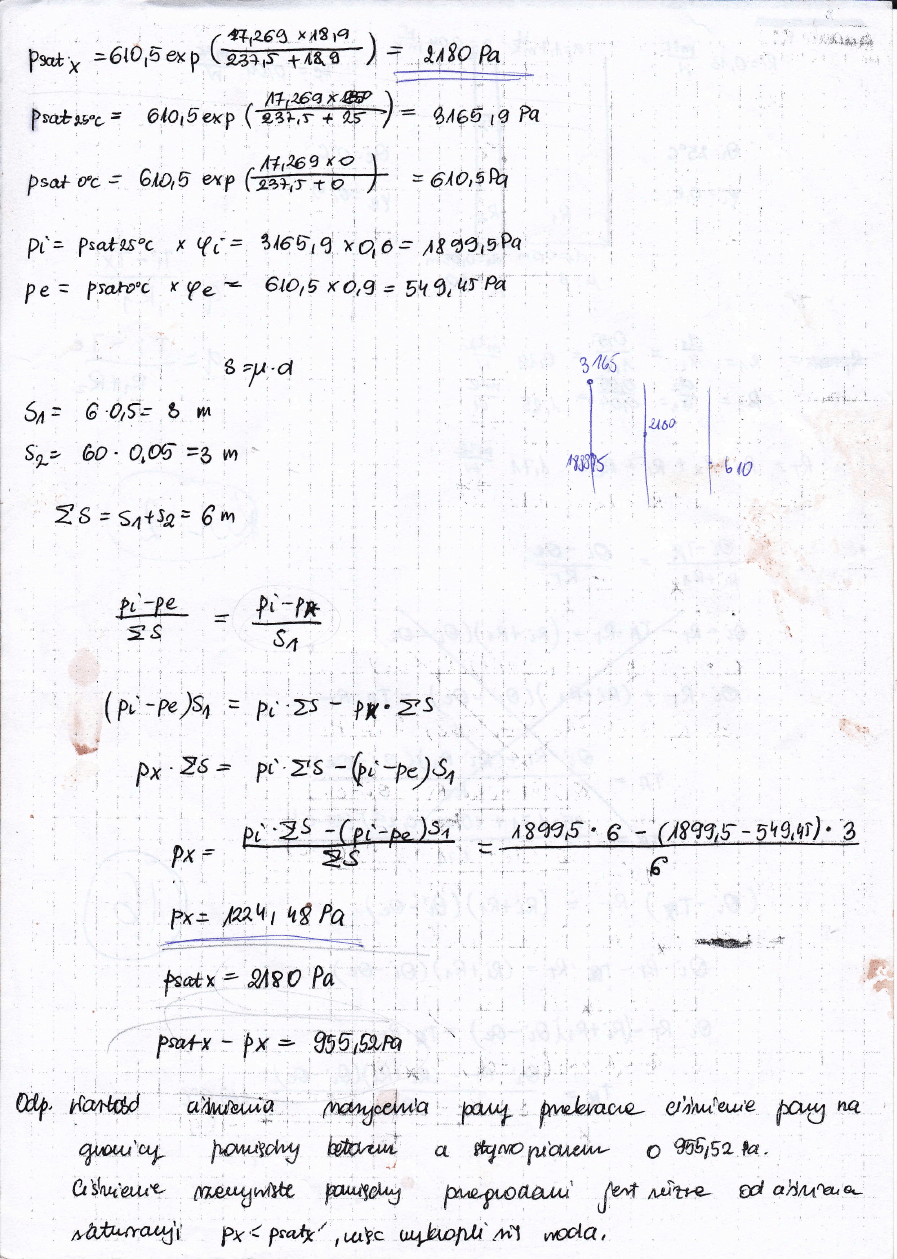 psat x = 610,5 exp (17,269 × 18,9 / 237,5 + 18,9) = 2180 Pa
psat 25°C = 610,5 exp (17,269 × 25 / 237,5 + 25) = 3165,9 Pa
psat 0°C = 610,5 exp (17,269 × 0 / 237,5 + 0) = 610,5 Pa
pi = psat 25°C × φi = 3165,9 × 0,6 = 1899,5 Pa
pe = psat 0°C × φe = 610,5 × 0,9 = 549,45 Pa
S = μ · d
S1 = 6 · 0,5 = 3 m
S2 = 60 · 0,05 = 3 m
ΣS = S1 + S2 = 6 m
3165
2180
610
pi - pe / ΣS = pi - px / S1
(pi - pe) S1 = pi · ΣS - px · ΣS
px · ΣS = pi · ΣS - (pi - pe) S1
px = pi · ΣS - (pi - pe) S1 / ΣS = 1899,5 · 6 - (1899,5 - 549,45) · 3 / 6
px = 1224,48 Pa
psat x = 2180 Pa
psat x - px = 955,52 Pa
Odp. Wartość ciśnienia nasycenia pary przekracza ciśnienie pary na
granicy pomiędzy betonem a styropianem o 955,52 Pa.
Ciśnienie rzeczywiste pomiędzy przegrodami jest niższe od ciśnienia
saturacji px < psatx , więc wykropli się woda.